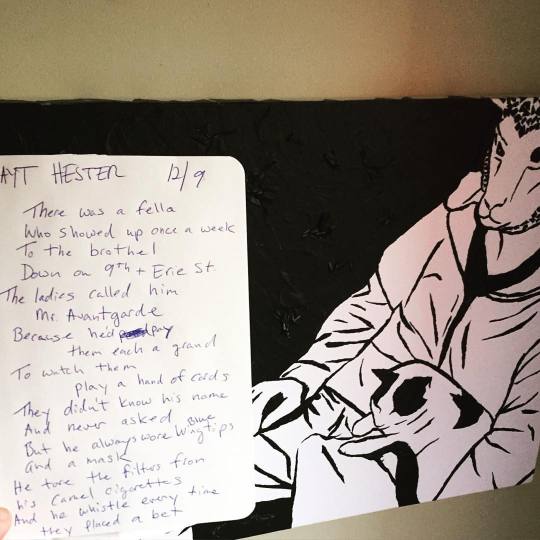 AYT HESTER 12/9
There was a fella
Who showed up once a week
To the brothel
Down on 9th + Erie St.
The ladies called him
Mr. Avantgarde
Because he'd pay
them each a grand
To watch them
play a hand of cards
They didn't know his name
And never asked
But he always wore Blue Wingtips
and a mask
He tore the filters from
his Camel cigarettes
And he whistle every time
they placed a bet